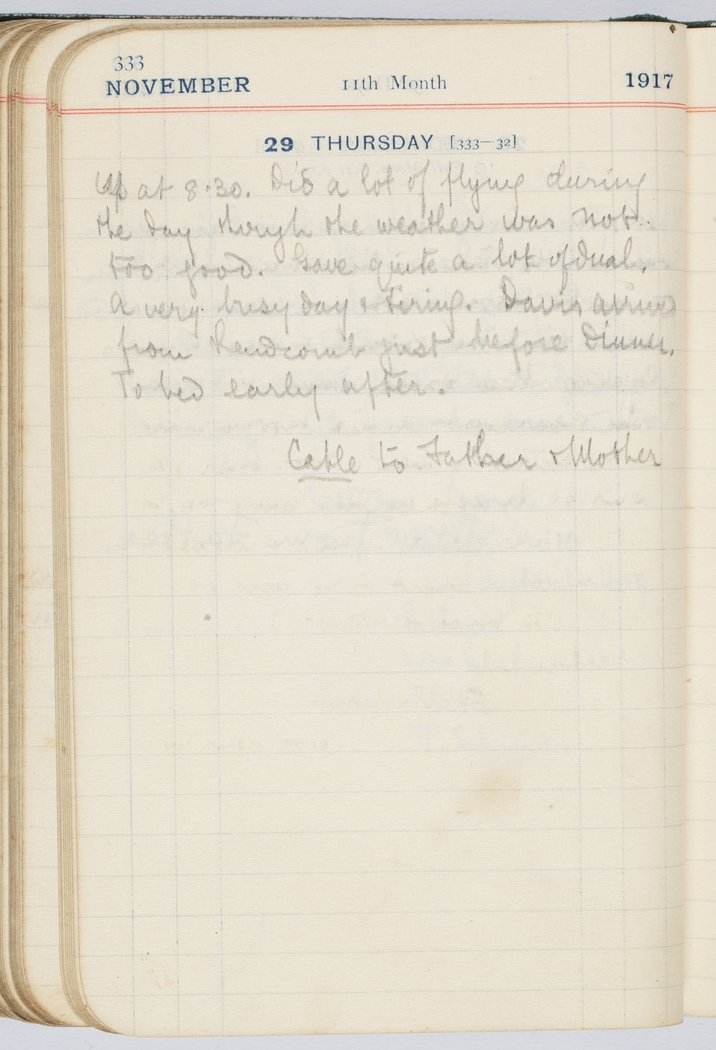 333
NOVEMBER 11th Month 1917
29 THURSDAY [333-32]
Up at 8.30. Did a lot of flying during
the day though the weather was not
too good. Gave quite a lot of dual.
A very busy day & tiring. Davis arrived
from Rendcomb just before dinner.
To bed early after.
Cable to Father & Mother